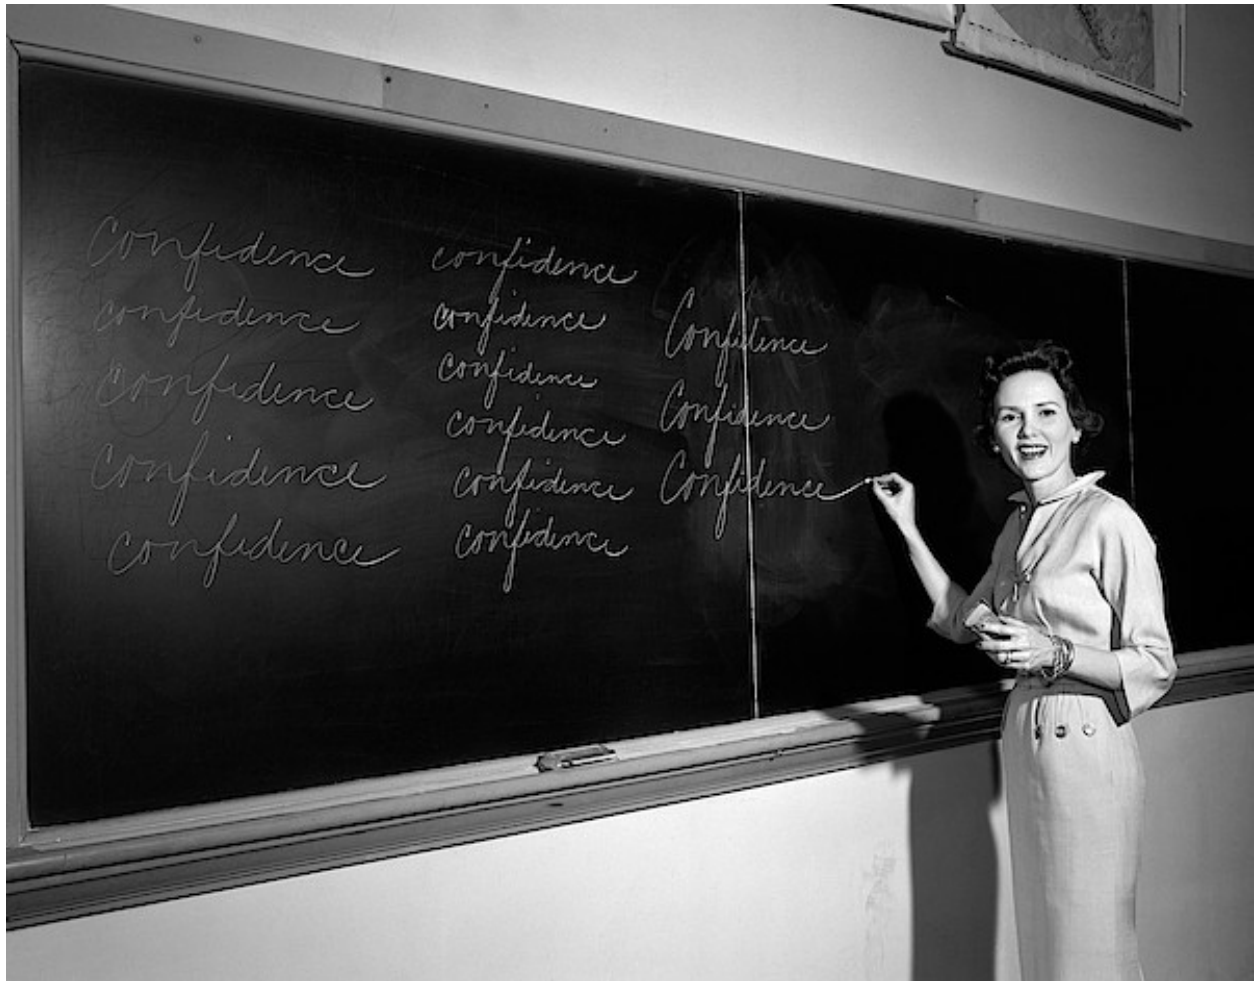 Confidence
confidence
confidence
Confidence
confidence
confidence
confidence
confidence
confidence
confidence
confidence
Confidence
Confidence
Confidence